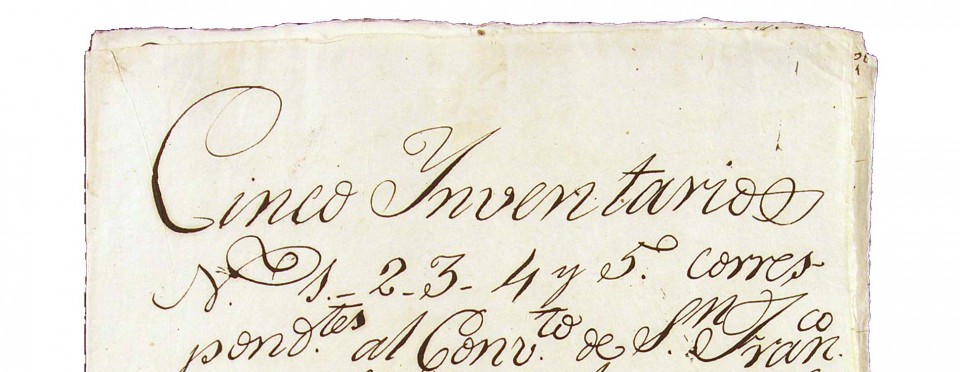 Cinco Ynventarios
N.os 1.-2-3-4 y 5. corres-
pond.tes al Conv.to de S.n Fran.co